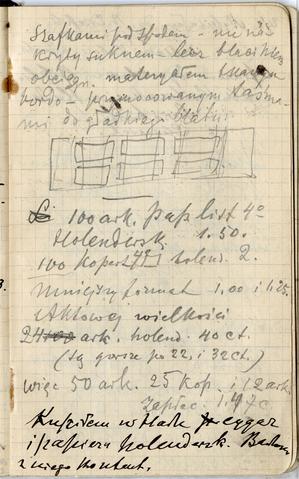 szafkami pod spodem – nie nas
kryty suknem – lecz
obciągn. materyałem
bordo – przymocowanym taśma
mi od gładkiego blatu
100 ark. pap list 4º
Holendersk. 1.50.
100 Kopert 4º holend. 2.
Mniejszy format 1,00 i 1.25.
Aktowej wielkości
24 ark. holend. 40 ct.
(są gorsze po 22, i 32 ct.)
więc 50 ark. 25 Kop. i 12 ark
Zapłac. 1,47 c
Kupiłem w Hark
i papieru holendersk.
z niego kontent.